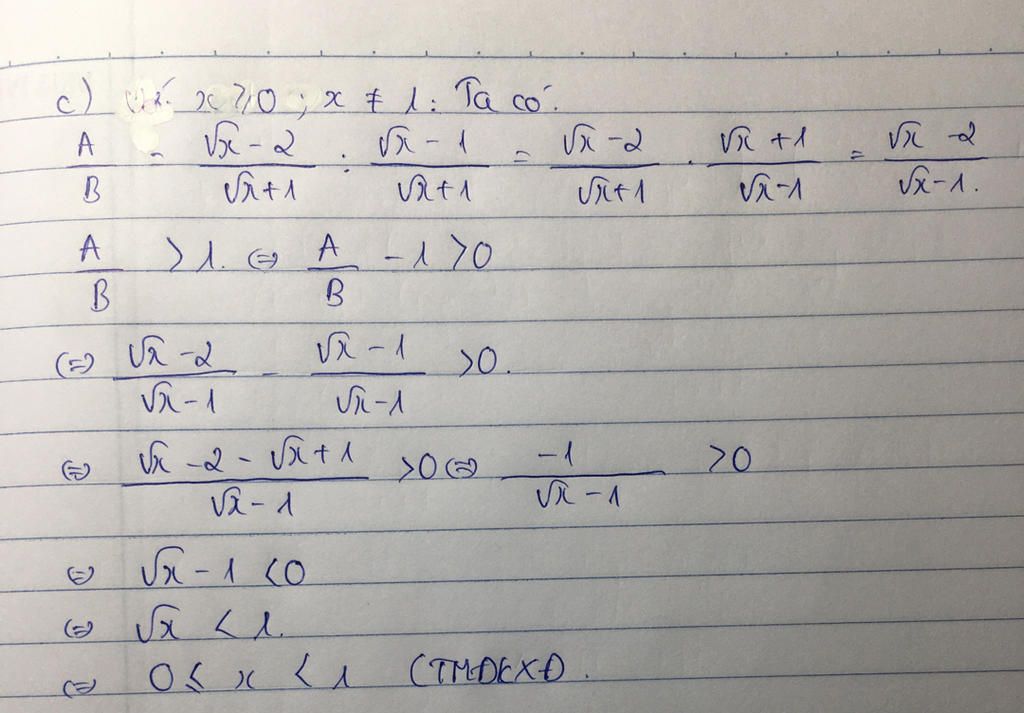 c) Với x ⩾ 0 ; x ≠ 1 : Ta có.
A/B = (√x - 2)/(√x + 1) : (√x - 1)/(√x + 1) = (√x - 2)/(√x + 1) . (√x + 1)/(√x - 1) = (√x - 2)/(√x - 1).
A/B > 1. ⇔ A/B - 1 > 0
⇔ (√x - 2)/(√x - 1) - (√x - 1)/(√x - 1) > 0.
⇔ (√x - 2 - √x + 1)/(√x - 1) > 0 ⇔ -1/(√x - 1) > 0
⇔ √x - 1 < 0
⇔ √x < 1.
⇔ 0 ≤ x < 1 (TMĐKXĐ.